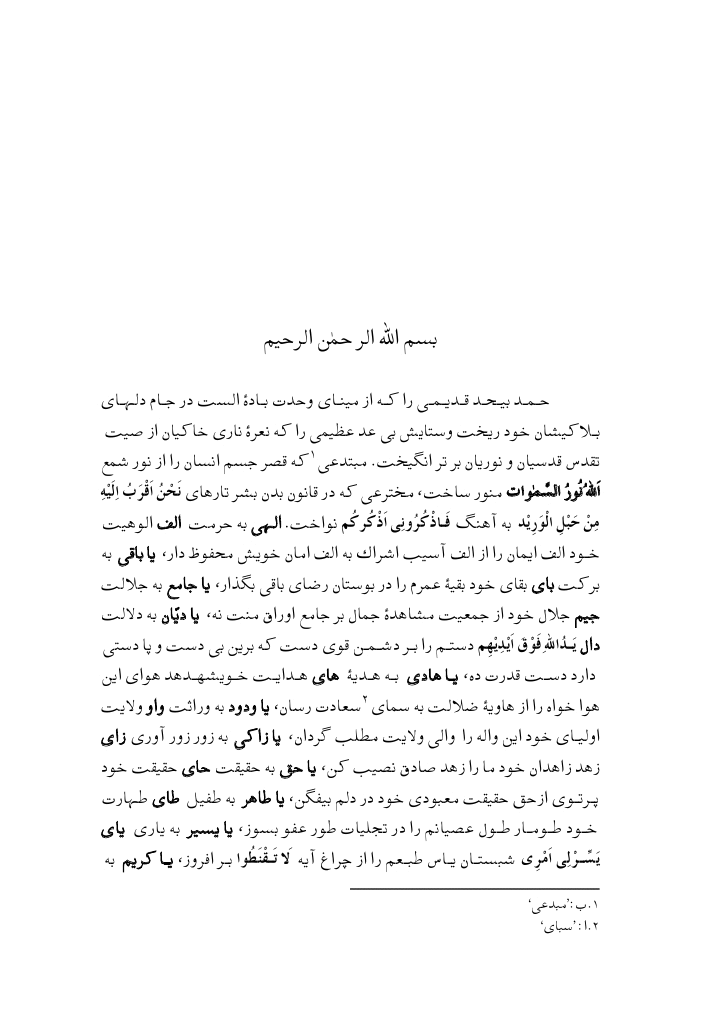 بسم الله الرحمٰن الرحیم
حمد بیحد قدیمی را که از مینای وحدت بادۀ الست در جام دلهای
بلاکیشان خود ریخت وستایش بی عد عظیمی را که نعرۀ ناری خاکیان از صیت
تقدس قدسیان و نوریان بر تر انگیخت. مبتدعی۱ که قصر جسم انسان را از نور شمع
اَللهُ نُورُ السَّمٰوات منور ساخت، مخترعی که در قانون بدن بشر تارهای نَحْنُ اَقْرَبُ اِلَیْهِ
مِنْ حَبْلِ الْوَرِیْد به آهنگ فَاذْکُرُونِی اَذْکُرکُم نواخت. الهی به حرمت الف الوهیت
خود الف ایمان را از الف آسیب اشراك به الف امان خویش محفوظ دار، یا باقی به
برکت بای بقای خود بقیۀ عمرم را در بوستان رضای باقی بگذار، یا جامع به جلالت
جیم جلال خود از جمعیت مشاهدۀ جمال بر جامع اوراق منت نه، یا دیّان به دلالت
دال یَدُاللهِ فَوْقَ اَیْدِیْهِم دستم را بر دشمن قوی دست که برین بی دست و پا دستی
دارد دست قدرت ده، یا هادی به هدیۀ های هدایت خویشهدهد هوای این
هوا خواه را از هاویۀ ضلالت به سمای۲ سعادت رسان، یا ودود به وراثت واو ولایت
اولیای خود این واله را والی ولایت مطلب گردان، یا زاکی به زور زور آوری زای
زهد زاهدان خود ما را زهد صادق نصیب کن، یا حق به حقیقت حای حقیقت خود
پرتوی از حق حقیقت معبودی خود در دلم بیفگن، یا طاهر به طفیل طای طهارت
خود طومار طول عصیانم را در تجلیات طور عفو بسوز، یا یسیر به یاری یای
یَسِّرْلِی اَمْرِی شبستان یاس طبعم را از چراغ آیه لَا تَقْنَطُوا بر افروز، یا کریم به
۱. ب: ’مبدعی‘
۲. ا: ’سبای‘